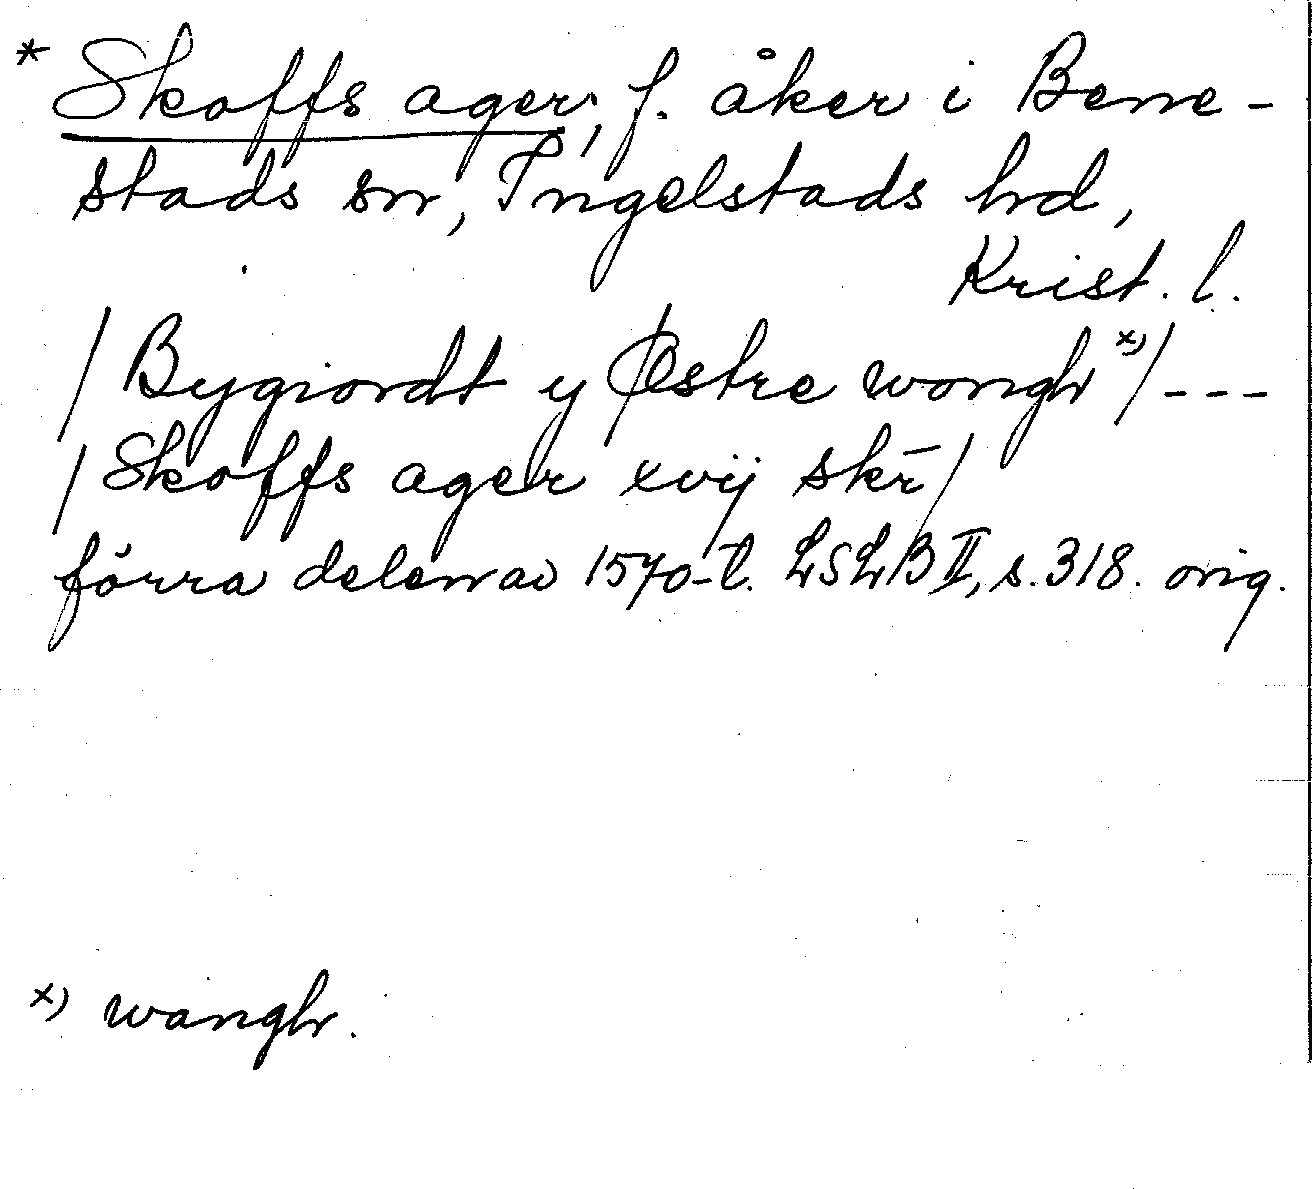 * Skoffs ager, f. åker i Bene-
stads sn, Ingelstads hd,
Krist. l.
/ Bygiordt y Østre wongh x) / ---
/ Skoffs ager xvij skr̄ /
förra delen av 1570-t. LSLB II, s. 318. orig.
x) wangh.